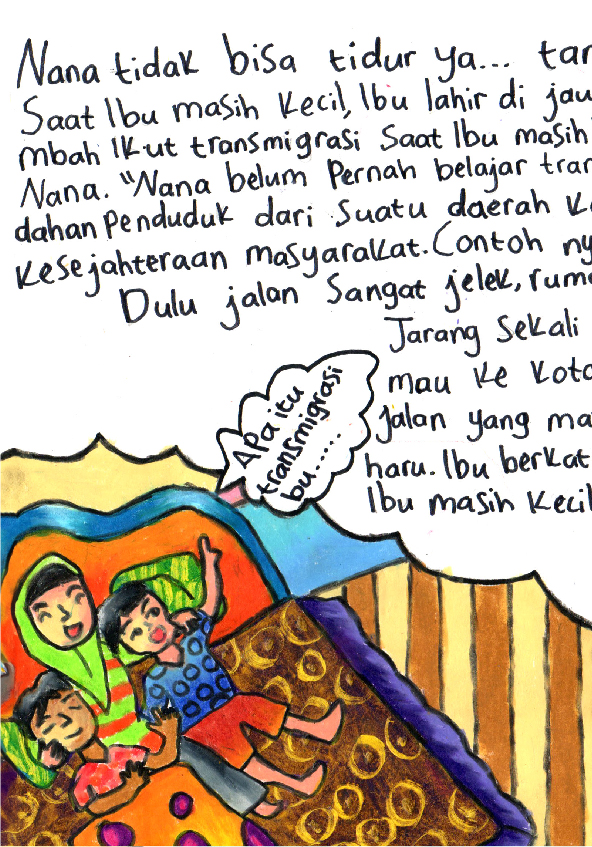 Nana tidak bisa tidur ya... tan
Saat Ibu masih kecil, Ibu lahir di jau
mbah Ikut transmigrasi Saat Ibu masih
Nana. "Nana belum Pernah belajar tran
dahan Penduduk dari Suatu daerah ke
kesejahteraan masyarakat. Contoh ny
Dulu jalan Sangat jelek, rum
Jarang Sekali
mau ke kota
jalan yang ma
haru. Ibu berkat
Ibu masih kecil
APa itu
transmigrasi
bu......